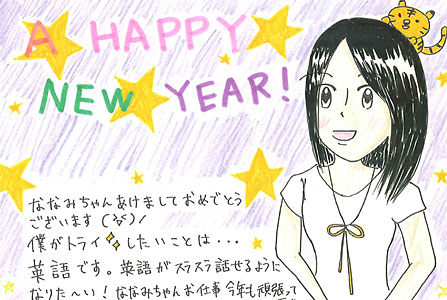 A HAPPY
NEW YEAR!
ななみちゃんあけましておめでとう
ございます(^^)/
僕がトライ✨したいことは・・・
英語です。英語がスラスラ話せるように
なりた〜い！ななみちゃんお仕事今年も頑張って